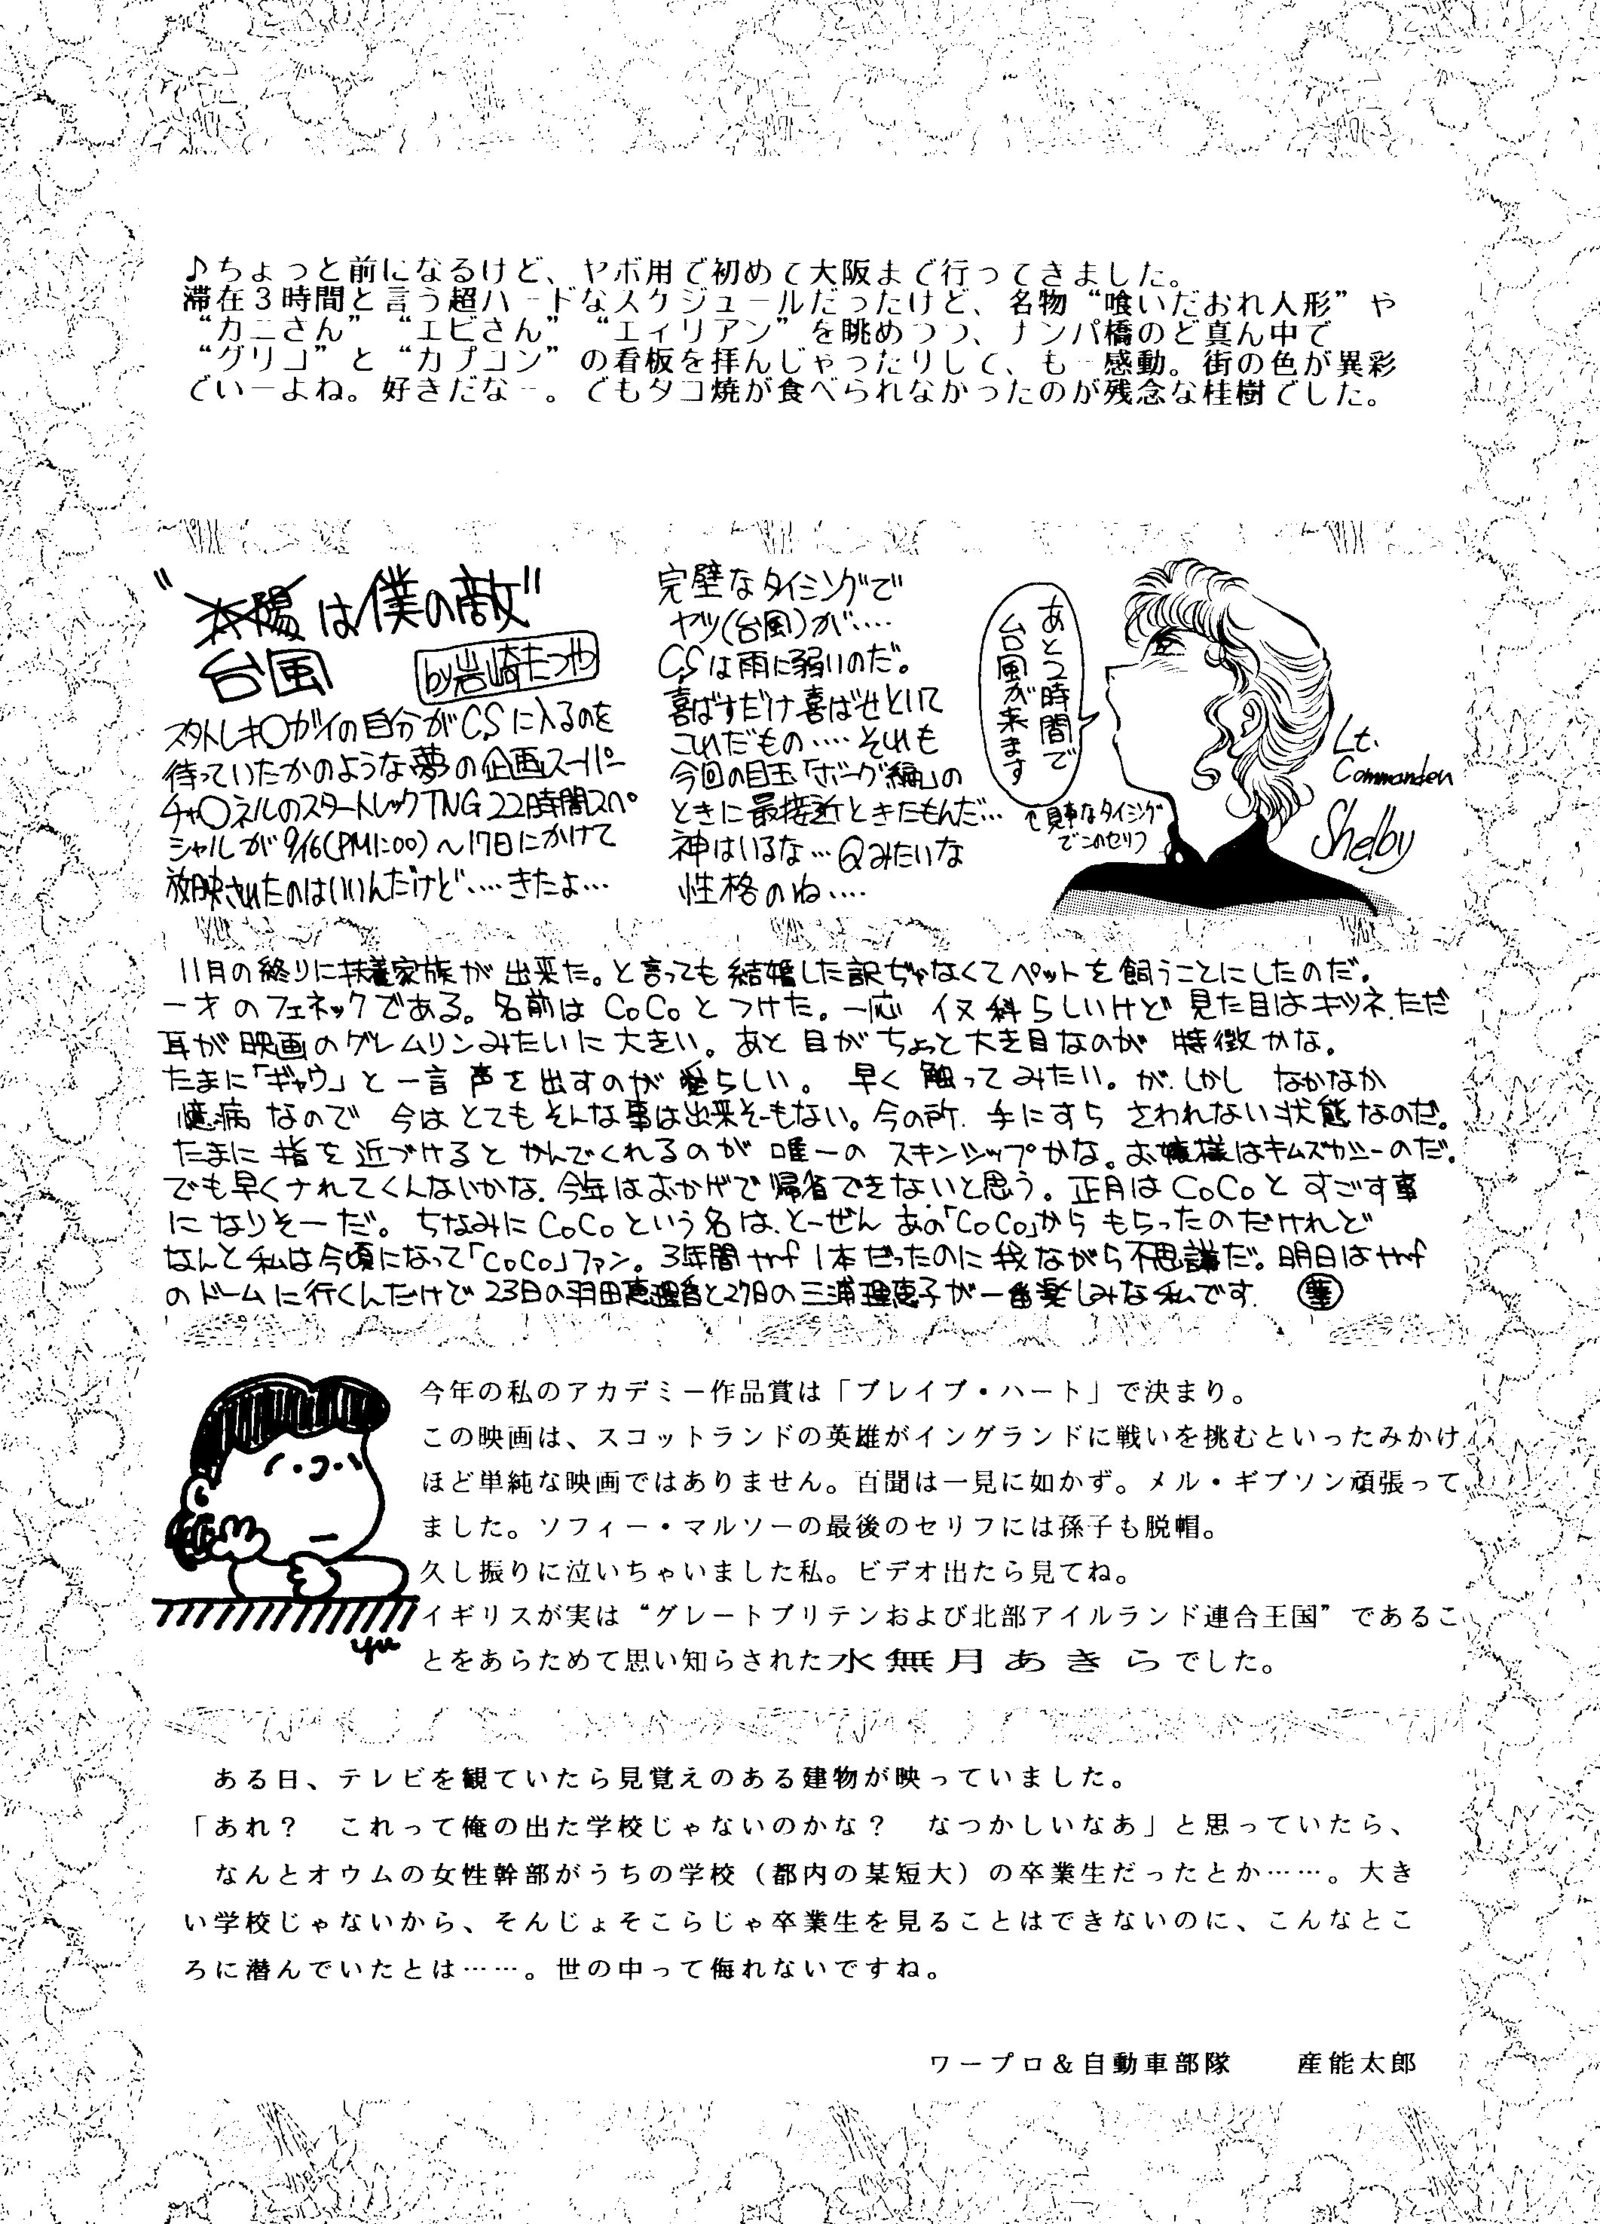 ♪ちょっと前になるけど、ヤボ用で初めて大阪まで行ってきました。
滞在3時間と言う超ハードなスケジュールだったけど、名物“喰いだおれ人形”や
“カニさん”“エビさん”“エィリアン”を眺めつつ、ナンパ橋のど真ん中で
“グリコ”と“カプコン”の看板を拝んじゃったりして、もー感動。街の色が異彩
でいーよね。好きだなー。でもタコ焼が食べられなかったのが残念な桂樹でした。
“太陽は僕の敵”
台風
by岩崎たつや
スタトレキ〇ガイの自分がCSに入るのを
待っていたかのような夢の企画スーパー
チャ〇ネルのスタートレックTNG22時間スペ
シャルが9/16(PM1:00)～17日にかけて
放映されたのはいいんだけど‥‥きたよ…
完璧なタイミングで
ヤツ(台風)が‥‥
CSは雨に弱いのだ。
喜ばすだけ喜ばせといて
これだもの‥‥それも
今回の目玉「ボーグ編」の
ときに最接近ときたもんだ…
神はいるな…Qみたいな
性格のね‥‥
あと2時間で
台風が来ます
↑見事なタイミング
でこのセリフ
Lt.
Commander
Shelby
11月の終りに扶養家族が出来た。と言っても結婚した訳ぢゃなくてペットを飼うことにしたのだ。
一才のフェネックである。名前はCoCoとつけた。一応イヌ科らしいけど見た目はキツネ、ただ
耳が映画のグレムリンみたいに大きい。あと目がちょっと大き目なのが特徴かな。
たまに「ギャウ」と一言声を出すのが愛らしい。早く触ってみたい。が、しかしなかなか
憶病なので今はとてもそんな事は出来そーもない。今の所、手にすらさわれない状態なのだ。
たまに指を近づけるとかんでくれるのが唯一のスキンシップかな。お嬢様はキムズカシーのだ。
でも早くナれてくんないかな、今年はおかげで帰省できないと思う。正月はCoCoとすごす事
になりそーだ。ちなみにCoCoという名は、とーぜんあの「CoCo」からもらったのだけれど
なんと私は今頃になって「CoCo」ファン。3年間ｻﾔｶ1本だったのに我ながら不思議だ。明日は
のドームに行くんだけで23日の羽田恵理香と27日の三浦理恵子が一番楽しみな私です。
今年の私のアカデミー作品賞は「ブレイブ・ハート」で決まり。
この映画は、スコットランドの英雄がイングランドに戦いを挑むといったみかけ
ほど単純な映画ではありません。百聞は一見に如かず。メル・ギブソン頑張って
ました。ソフィー・マルソーの最後のセリフには孫子も脱帽。
久し振りに泣いちゃいました私。ビデオ出たら見てね。
イギリスが実は“グレートブリテンおよび北部アイルランド連合王国”であるこ
とをあらためて思い知らされた水無月あきらでした。
yu
ある日、テレビを観ていたら見覚えのある建物が映っていました。
「あれ？　これって俺の出た学校じゃないのかな？　なつかしいなあ」と思っていたら、
なんとオウムの女性幹部がうちの学校（都内の某短大）の卒業生だったとか……。大き
い学校じゃないから、そんじょそこらじゃ卒業生を見ることはできないのに、こんなとこ
ろに潜んでいたとは……。世の中って侮れないですね。
ワープロ＆自動車部隊　産能太郎